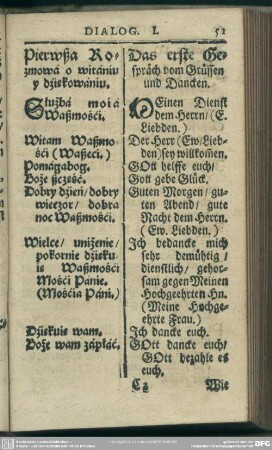 DIALOG. I. 51
Pierwßa Ro-
zmowá o witániu
y dźiekowániu.
Służbá moiá
Waßmośći.
Witam Waßmo-
śći (Waßeći.)
Pomágabog.
Boże ßczęść.
Dobry dźień/ dobry
wieczor/ dobra
noc Waßmośći.
Wielce/ uniżenie/
pokornie dźięku-
ie Waßmośći
Mośći Panie.
(Mośćia Páni.)
Dźiękuie wam.
Boże wam zápłáć.
Das erste Ge-
spräch vom Grüssen
und Dancken.
MEinen Dienst
dem Herrn/ (E.
Liebden.)
Der Herr (Ew. Lieb-
den) sey willkom̃en.
GOtt helffe euch/
Gott gebe Glück.
Guten Morgen/ gu-
ten Abend/ gute
Nacht dem Herrn.
(Ew. Liebden.)
Ich bedancke mich
sehr demühtig/
dienstlich/ gehor-
sam gegen Meinen
Hochgeehrten Hn.
(Meine Hochge-
ehrte Frau.)
Ich dancke euch.
GOtt dancke euch/
GOtt bezahle es
euch.
Wie